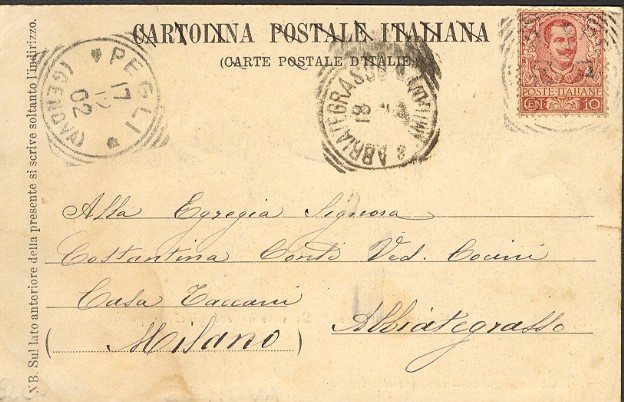 CARTOLINA POSTALE ITALIANA
(CARTE POSTALE D'ITALIE)
POSTE ITALIANE
CEN. 10
PEGLI
17
02
(GENOVA)
ABBIATEGRASSO
(MILANO)
18
Alla Egregia Signora
Costantina Conti Ved. Cocini
Casa Taccani
Abbiategrasso
(Milano)
NB. Sul lato anteriore della presente si scrive soltanto l'indirizzo.